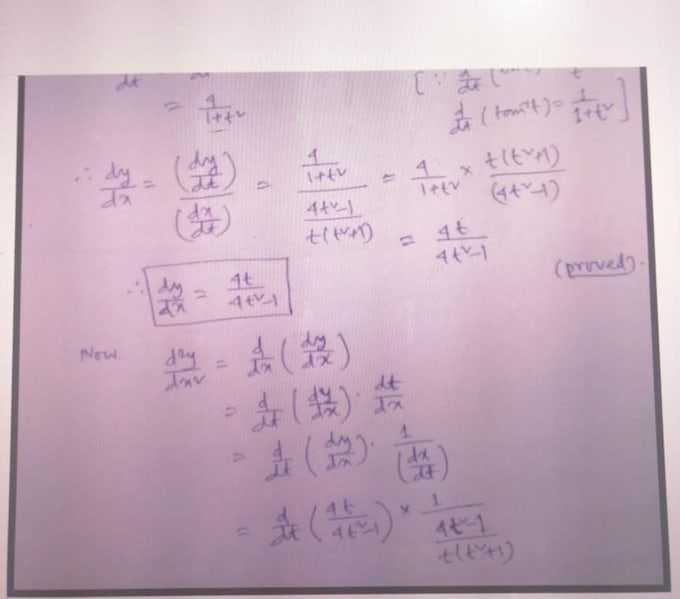 dt
= 4/(1+t²) d/dt (tan⁻¹t) = 1/(1+t²) ]
∴ dy/dx = (dy/dt)/(dx/dt) = (4/(1+t²))/((4t²-1)/(t(t²+1))) = 4/(1+t²) × t(t²+1)/(4t²-1)
= 4t/(4t²-1)
(proved).
∴ dy/dx = 4t/(4t²-1)
Now. d²y/dx² = d/dx (dy/dx)
= d/dt (dy/dx) · dt/dx
= d/dt (dy/dx) · 1/(dx/dt)
= d/dt (4t/(4t²-1)) × 1/((4t²-1)/(t(t²+1)))